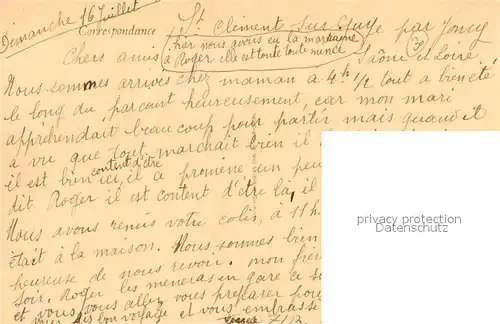 Dimanche 16 Juillet
St Clément-sur-Guye par Joncy
Correspondance
Saône et Loire
hier nous avons eu la marraine
a Roger elle est toute toute menue
Chers amis
Nous sommes arrivés chez maman a 4h 1/2 tout a bien été
le long du parcourt heureusement, car mon mari
appréhendait beaucoup pour partir mais quand il
a vu que tout marchait bien il
content d'être
il est bien ici, il ce promène un peu
dit Roger il est content d'être là, il
Nous avons remis votre colis, a 11h
était à la maison. Nous sommes bien
heureuse de nous revoir. mon
soir. Roger les meneras en gare ce
et vous vous allez vous préparer pour
bon voyage et vous embrasse
privacy protection
Datenschutz